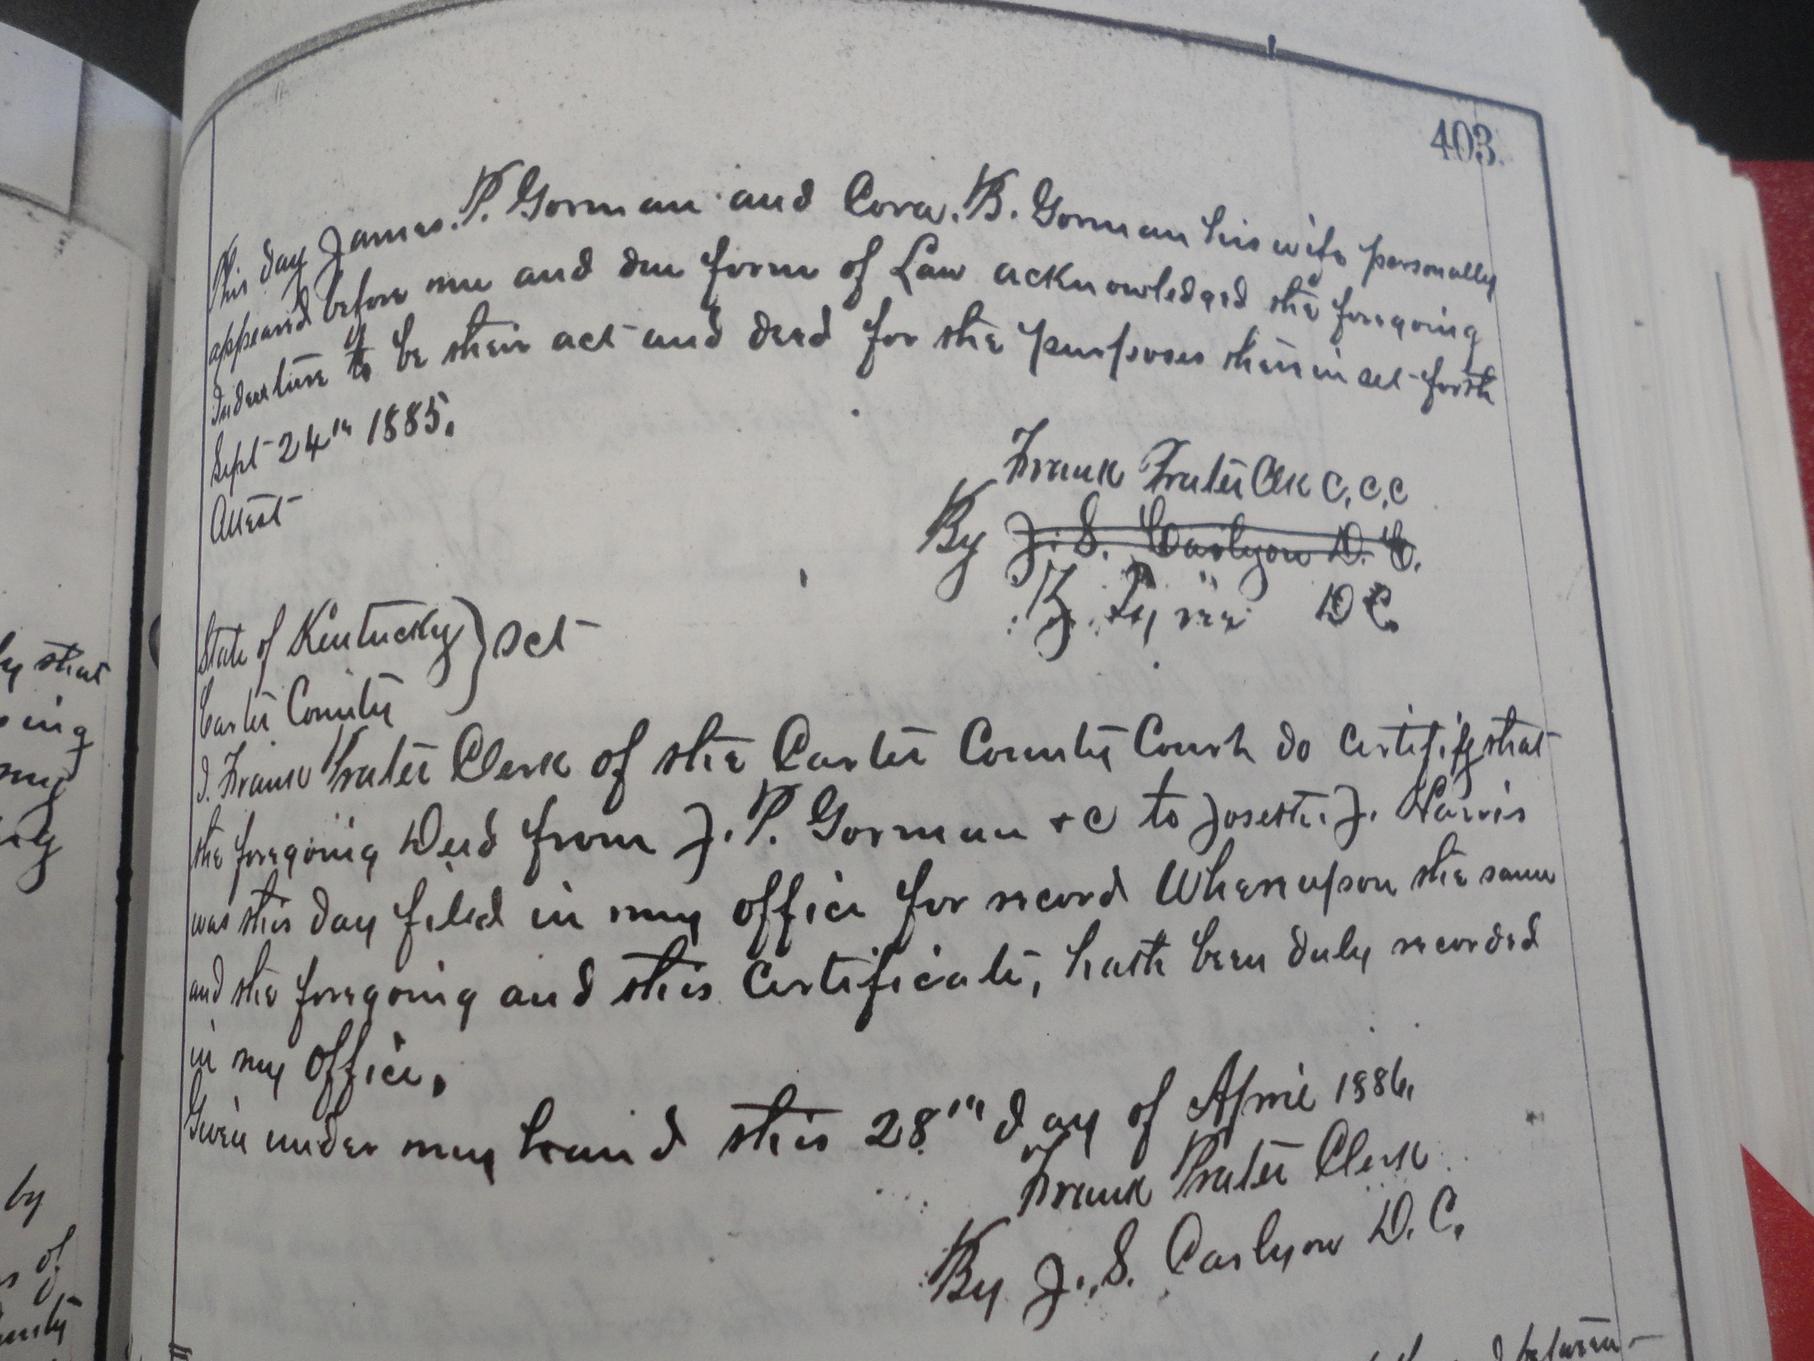 403.
This day James. P. Gorman and Cora. B. Gorman his wife personally
appeared before me and due form of Law acknowledged the foregoing
Indenture to be their act and deed for the purposes therein set forth
Sept 24th 1885.
Attest
Frank Prater Clk C.C.C
By J. S. Carlyon D. C.
D C.
State of Kentucky } Sct
Carter County
I. Frank Prater Clerk of the Carter County Court do certify that
the foregoing Deed from J. P. Gorman &c to J. Harris
was this day filed in my office for record Whereupon the same
and the foregoing and this certificate, hath been duly recorded
in my office.
Given under my hand this 28th day of April 1886.
Frank Prater Clerk
By J. S. Carlyon D. C.
ly that
ing
my
by
of
between